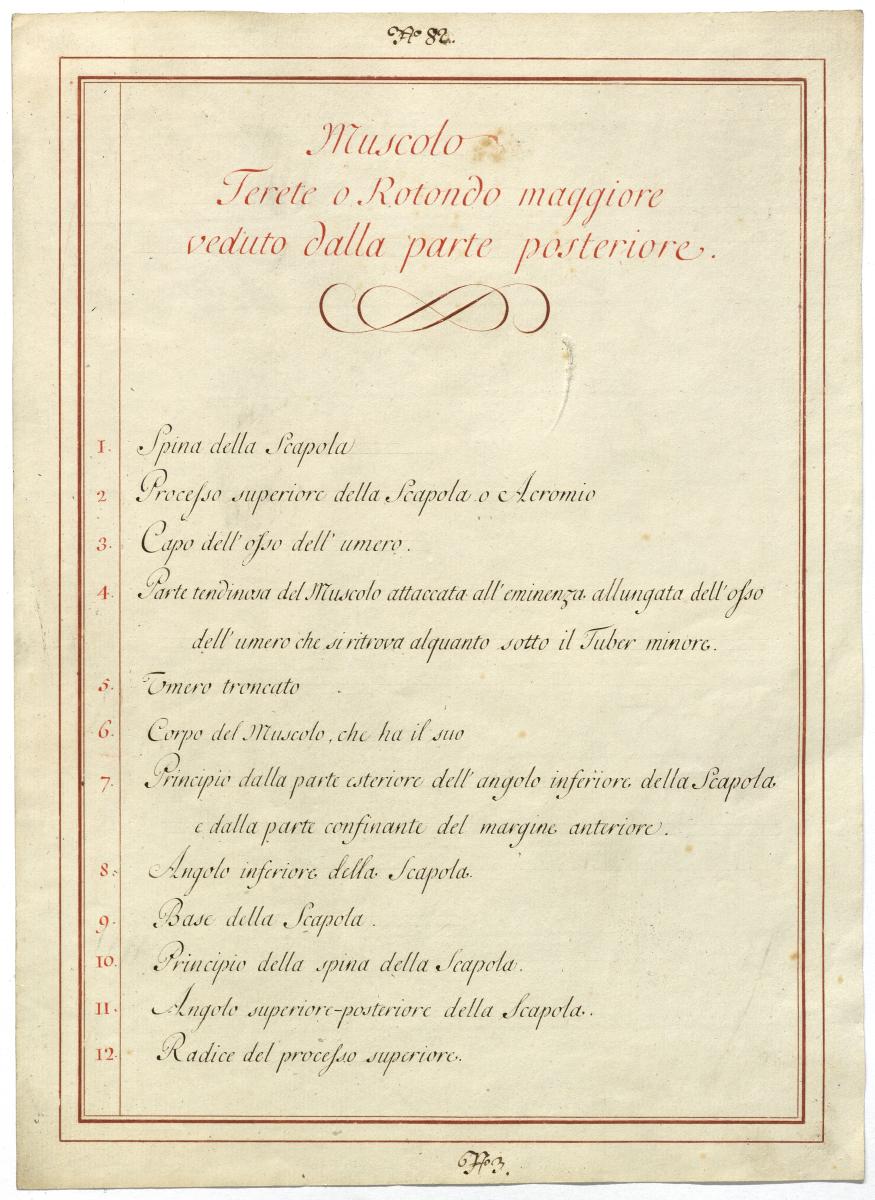 No 82.
Muscolo
Terete o Rotondo maggiore
veduto dalla parte posteriore.
1. Spina della Scapola
2 Processo superiore della Scapola o Acromio
3. Capo dell' osso dell' umero.
4. Parte tendinosa del Muscolo attaccata all' eminenza allungata dell' osso
dell' umero che si ritrova alquanto sotto il Tuber minore.
5. Umero troncato
6. Corpo del Muscolo, che ha il suo
7. Principio dalla parte esteriore dell' angolo inferiore della Scapola
e dalla parte confinante del margine anteriore.
8. Angolo inferiore della Scapola.
9. Base della Scapola.
10. Principio della spina della Scapola.
11. Angolo superiore-posteriore della Scapola.
12. Radice del processo superiore.
No 3.